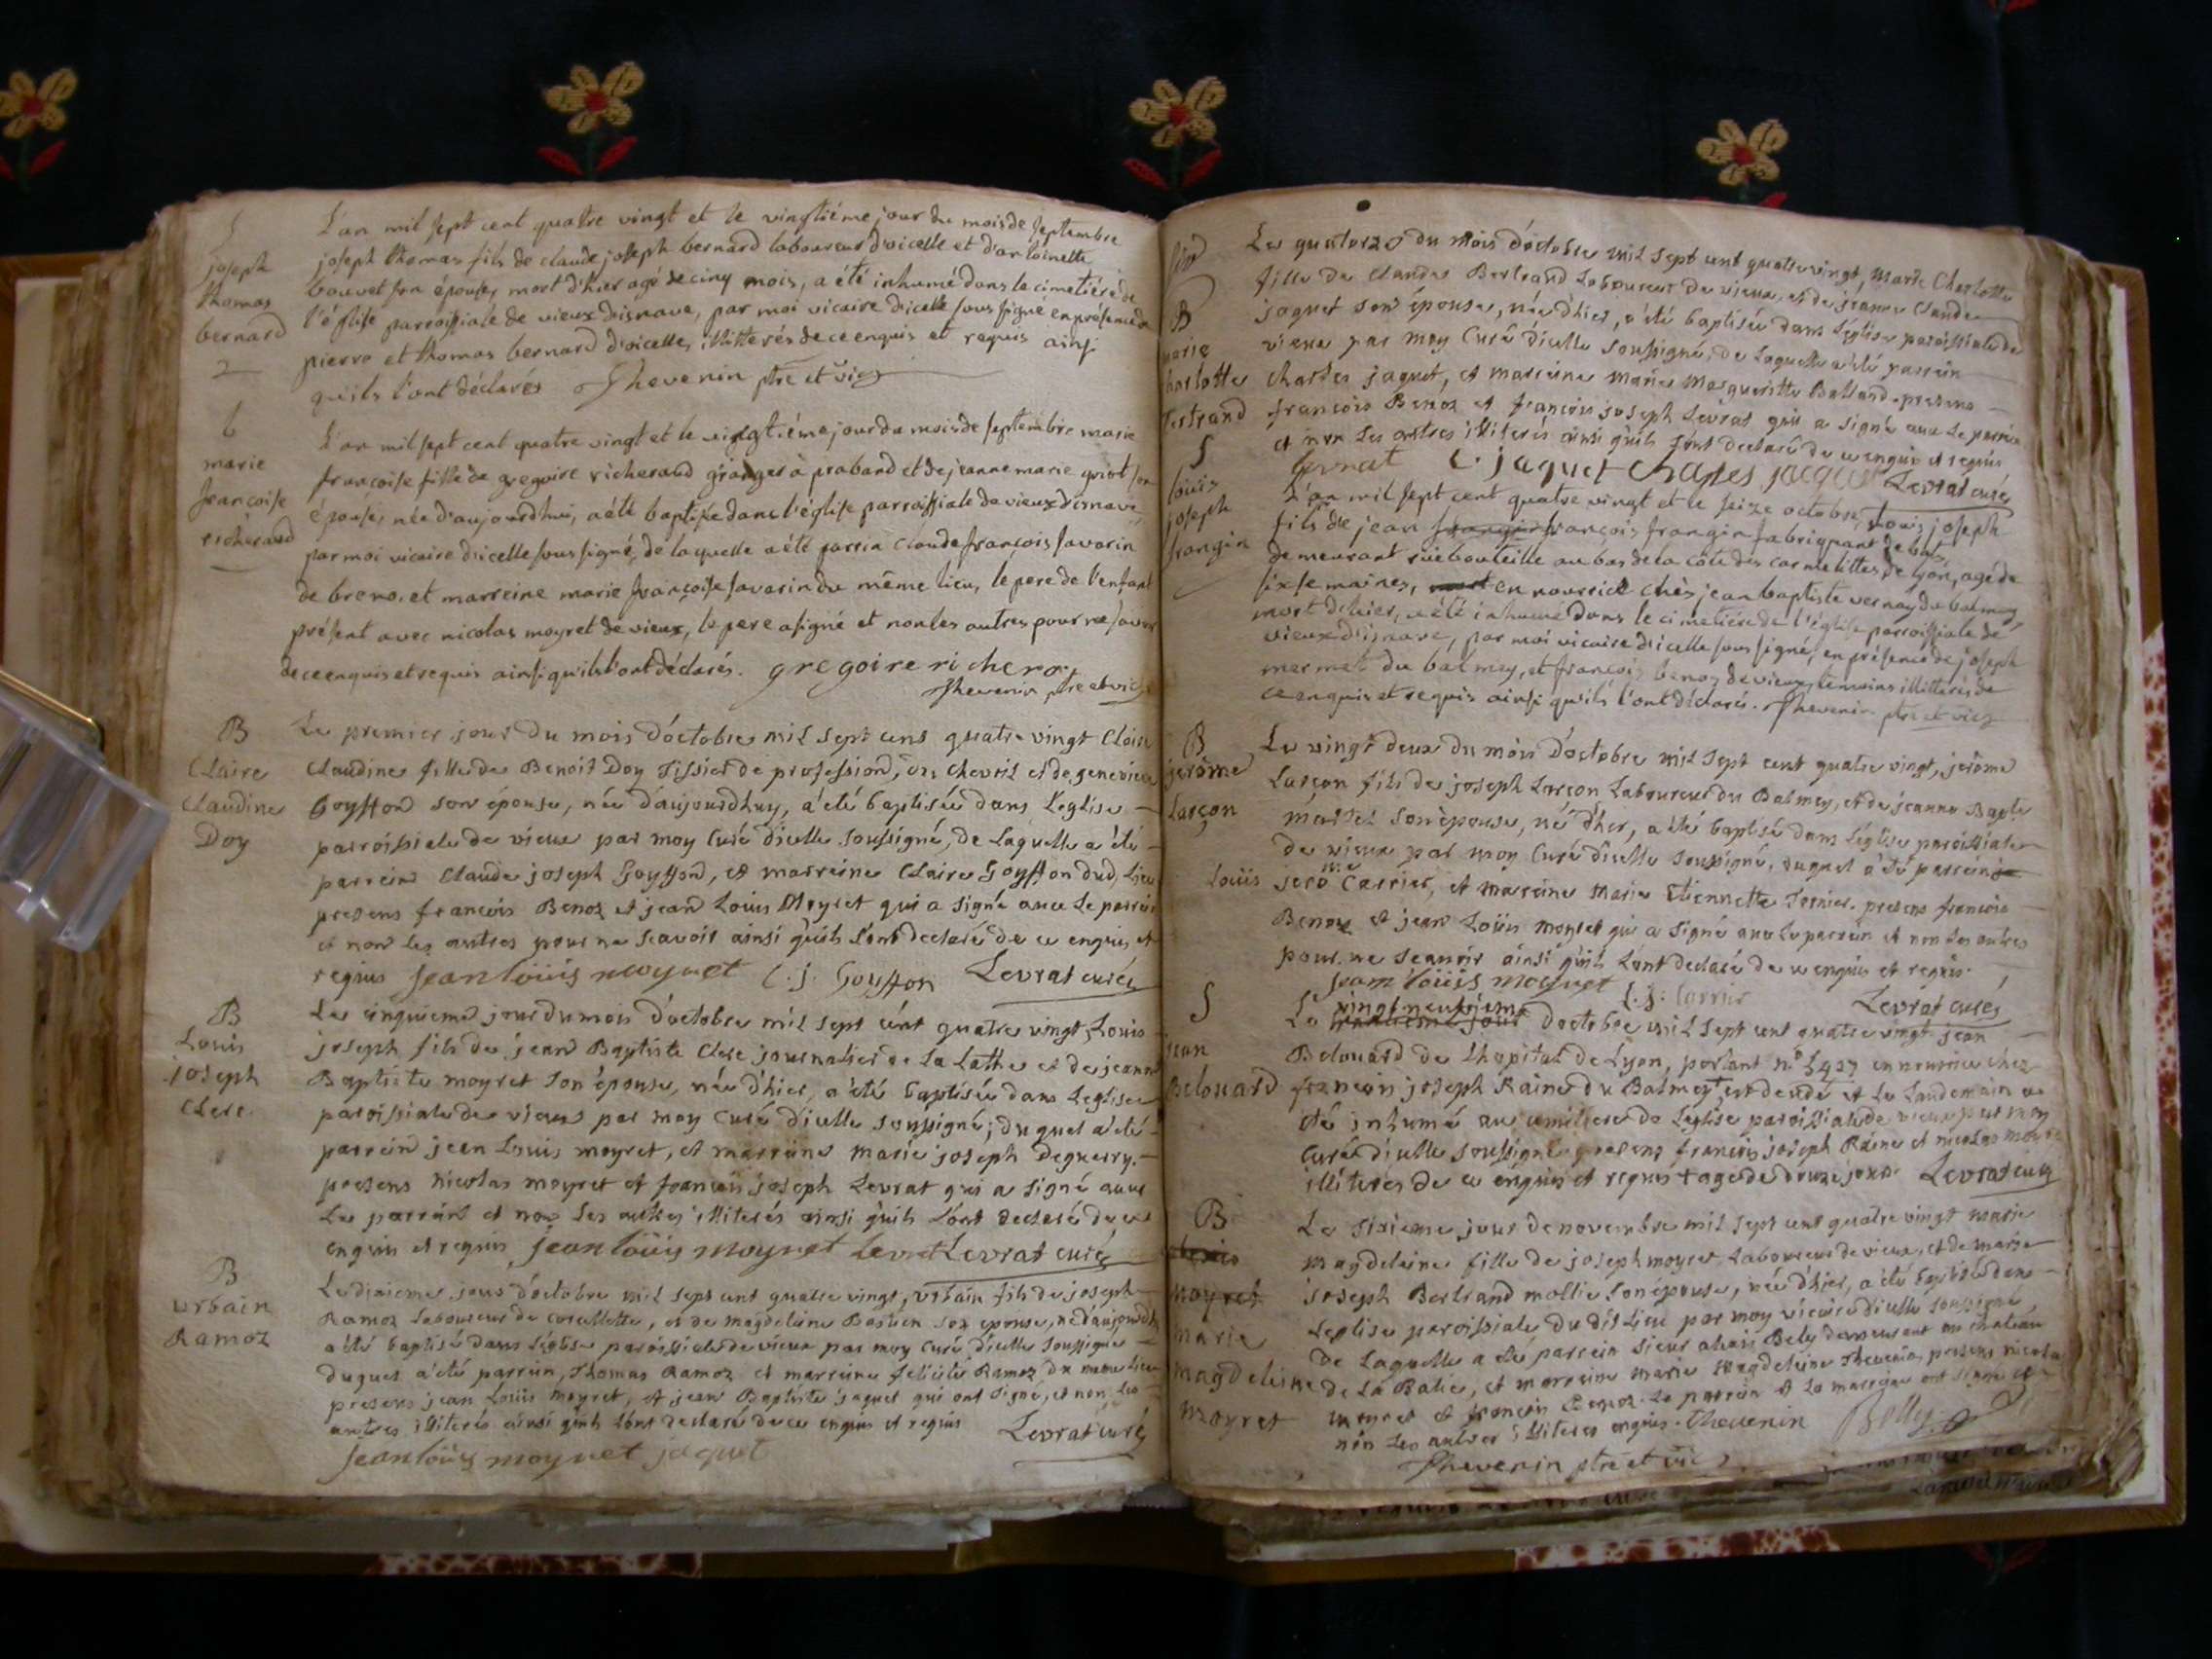 S
L'an mil sept cent quatre vingt et le vingtiéme jour du mois de septembre
joseph
joseph thomas fils de claude joseph bernard laboureur d'oicelle et d'antoinette
thomas
bouvet son épouse, mort d'hier agé de cinq mois, a été inhumé dans le cimetiére de
bernard
l'église parroissiale de vieux d'isnave, par moi vicaire d'icelle sous signé en présence de
pierre et thomas bernard d'oicelle, illitterés de ce enquis et requis ainsi
qu'ils l'ont déclarés Thevenin ptre et vic
b
L'an mil sept cent quatre vingt et le vingtiéme jour du mois de septembre marie
marie
françoise fille de gregoire richeraud granger à praband et de jeanne marie griot son
françoise
épouse, née d'aujourdhui, a été baptisée dans l'église parroissiale de vieux d'isnave
richeraud
par moi vicaire d'icelle sous signé, de laquelle a été parrin claude françois savarin
de breno. et marreine marie françoise savarin du même lieu, le pere de l'enfant
présent avec nicolas moyret de vieux, le pere a signé et non les autres pour ne savoir
de ce enquis et requis ainsi qu'ils l'ont déclarés. gregoire richerox
Thevenin ptre et vic
B
Le premier jour du mois d'octobre mil sept cens quatre vingt Claire
Claire
Claudine fille de Benoit Doy Tissier de profession, en Chevril et de genevieve
Claudine
Goyffon son épouse, née d'aujourdhuy, a été baptisée dans l'eglise
Doy
parroissiale de vieux par moy Curé d'icelle soussigné, de Laquelle a été
parrein Claude joseph Goyffon, et marreine Claire Goyffon dud. Lieu
presens francois Benoz et jean Loüis Moyret qui a signé avec Le parrein
et non Les autres pour ne scavoir ainsi qu'ils L'ont declaré de ce enquis et
requis jean loüis moyret C. j. Goyffon Levrat curé
B
Le cinquieme jour du mois d'octobre mil sept cent quatre vingt, Louis
Louis
joseph fils de jean Baptiste Clerc journalier de La Latte et de jeanne
joseph
Baptiste moyret son épouse, née d'hier, a été baptisée dans L'eglise
Clerc
paroissiale de vieux par moy Curé d'icelle soussigné; duquel a été
parrein jean Louis moyret, et marreine marie joseph Deguerry.
presens nicolas moyret et francois joseph Levrat qui a signé avec
Le parrein et non Les autres illiterés ainsi qu'ils L'ont declaré de ce
enquis et requis jean loüis moyret Levrat Levrat curé
B
Le dixieme jour d'octobre mil sept cent quatre vingt, urbain fils de joseph
urbain
Ramoz Laboureur de corcellette, et de magdeleine Bastien son epouse, né d'aujourdhuy
Ramoz
a été baptisé dans L'église paroissiale de vieux par moy Curé d'icelle soussigné
duquel a été parrein Thomas Ramoz et marreine felicité Ramoz du meme Lieu
presens jean Louis moyret, et jean Baptiste jaquet qui ont signé, et non Les
autres illiterés ainsi qu'ils L'ont declaré de ce enquis et requis Levrat curé
jean loüis moyret jaquet
Le quatorze du mois d'octobre mil sept cent quatre vingt, Marie Charlotte
fille de Claude Bertrand Laboureur de vieux, et de jeanne Claude
B
jaquet son épouse, née d'hier, a été baptisée dans L'église paroissiale de
marie
vieux par moy Curé d'icelle soussigné, de Laquelle a été parrein
harlotte
Charles jaquet, et marreine marie Margueritte Balland. presens
Bertrand
francois Benoz et francois joseph Levrat qui a signé avec Le parrein
S
et non Les autres illiterés ainsi qu'ils L'ont declaré de ce enquis et requis
Levrat C. jaquet Charles jaquet Levrat curé
louis
L'an mil sept cent quatre vingt et le seize octobre, Louis joseph
joseph
fils de jean françois frangin fabriquant de bas,
frangin
demeurant rüe bouteille au bas de la côte des carmelittes de lyon, agé de
six semaines, en nourrice chès jean baptiste vernay du balmay
mort d'hier, a été inhumé dans le cimetiére de l'église parroissiale de
vieux d'isnave, par moi vicaire d'icelle sous signé, en présence de joseph
mermet du balmey, et françois benoz de vieux, temoins illitterés de
ce enquis et requis ainsi qu'ils l'ont déclarés. Thevenin ptre et vic
B
Le vingt deux du mois d'octobre mil sept cent quatre vingt, jerôme
jerôme
Larçon fils de joseph Larçon Laboureur du Balmey, et de jeanne Bapte
Larçon
son épouse, né d'hier, a été baptisé dans L'église paroissiale
de vieux par moy Curé d'icelle soussigné, duquel a été parrein
Loüis jerô me Carrier, et marreine Marie Etiennette Tornier. presens francois
Benoz et jean Loüis moyret qui a signé avec Le parrein et non Les autres
pour ne scavoir ainsi qu'ils L'ont declaré de ce enquis et requis.
jean loüis moyret L. j. Carrier Levrat curé
S
Le vingt neuvieme d'octobre mil sept cent quatre vingt jean
jean
Belouard de L'hopital de Lyon, portant n° 5427 en nourrice chez
Belouard
francois joseph Raine du Balmey +, est decedé et Le Landemain a
été inhumé au cimitiere de L'eglise paroissiale de vieux par moy
Curé d'icelle soussigné presens francois joseph Raine et nicolas moyret
illiterés de ce enquis et requis + agé de douze jours Levrat curé
B
Le sixieme jour de novembre mil sept cent quatre vingt marie
magdeleine fille de joseph moyret Laboureur de vieux, et de marie
moyret
joseph Bertrand mollie son épouse, née d'hier, a été baptisée dans
marie
L'eglise paroissiale du dit Lieu par moy vicaire d'icelle soussigné,
de Laquelle a été parrein sieur Bely demeurant au chateau
magdeleine
de La Batie, et marreine marie magdeleine Thevenin, presens nicolas
moyret
moyret et francois Benoz. Le parrein et La marreine ont signé et
non Les autres illiteres enquis. Thevenin Belly
Thevenin ptre et vic